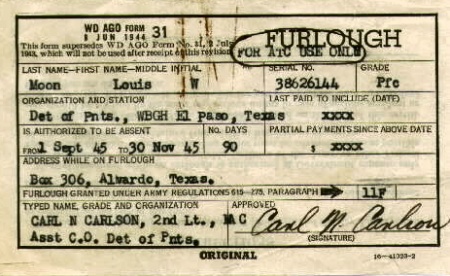 WD AGO FORM 31
8 JUN 1944
FURLOUGH
This form supersedes WD AGO Form No. 31, 2 July
1943, which will not be used after receipt of this revision.
FOR ATC USE ONLY
LAST NAME—FIRST NAME—MIDDLE INITIAL
SERIAL NO.
GRADE
Moon Louis W
38626144
Pfc
ORGANIZATION AND STATION
LAST PAID TO INCLUDE (DATE)
Det of Pnts., WBGH El Paso, Texas
xxxx
IS AUTHORIZED TO BE ABSENT
NO. DAYS
PARTIAL PAYMENTS SINCE ABOVE DATE
FROM 1 Sept 45 TO 30 Nov 45
90
$ xxxx
ADDRESS WHILE ON FURLOUGH
Box 306, Alwardo, Texas.
FURLOUGH GRANTED UNDER ARMY REGULATIONS 615-275, PARAGRAPH
11F
TYPED NAME, GRADE AND ORGANIZATION
APPROVED
CARL N CARLSON, 2nd Lt., MAC
Asst C.O. Det of Pnts.
Carl N. Carlson
(SIGNATURE)
ORIGINAL
16—41023-2